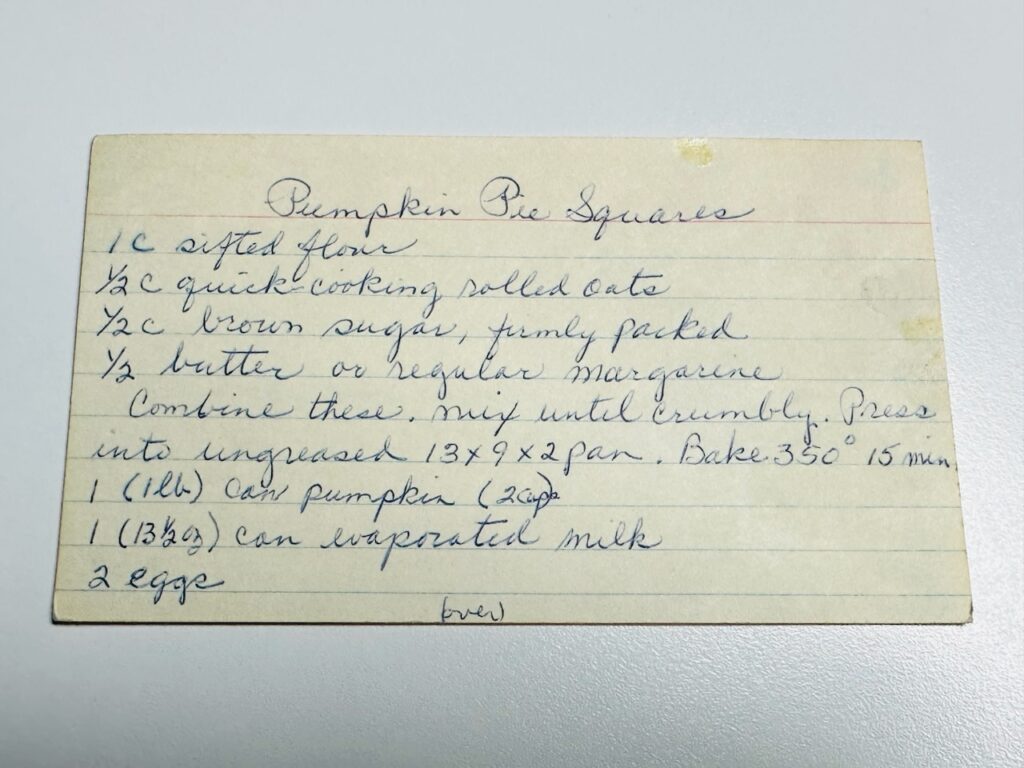 Pumpkin Pie Squares
1 c sifted flour
1/2 c quick-cooking rolled oats
1/2 c brown sugar, firmly packed
1/2 butter or regular margarene
Combine these. mix until crumbly. Press
into ungreased 13x9x2 pan. Bake 350° 15 min.
1 (1 lb) can pumpkin (2 cups)
1 (13 1/2 oz) can evaporated milk
2 eggs
(over)